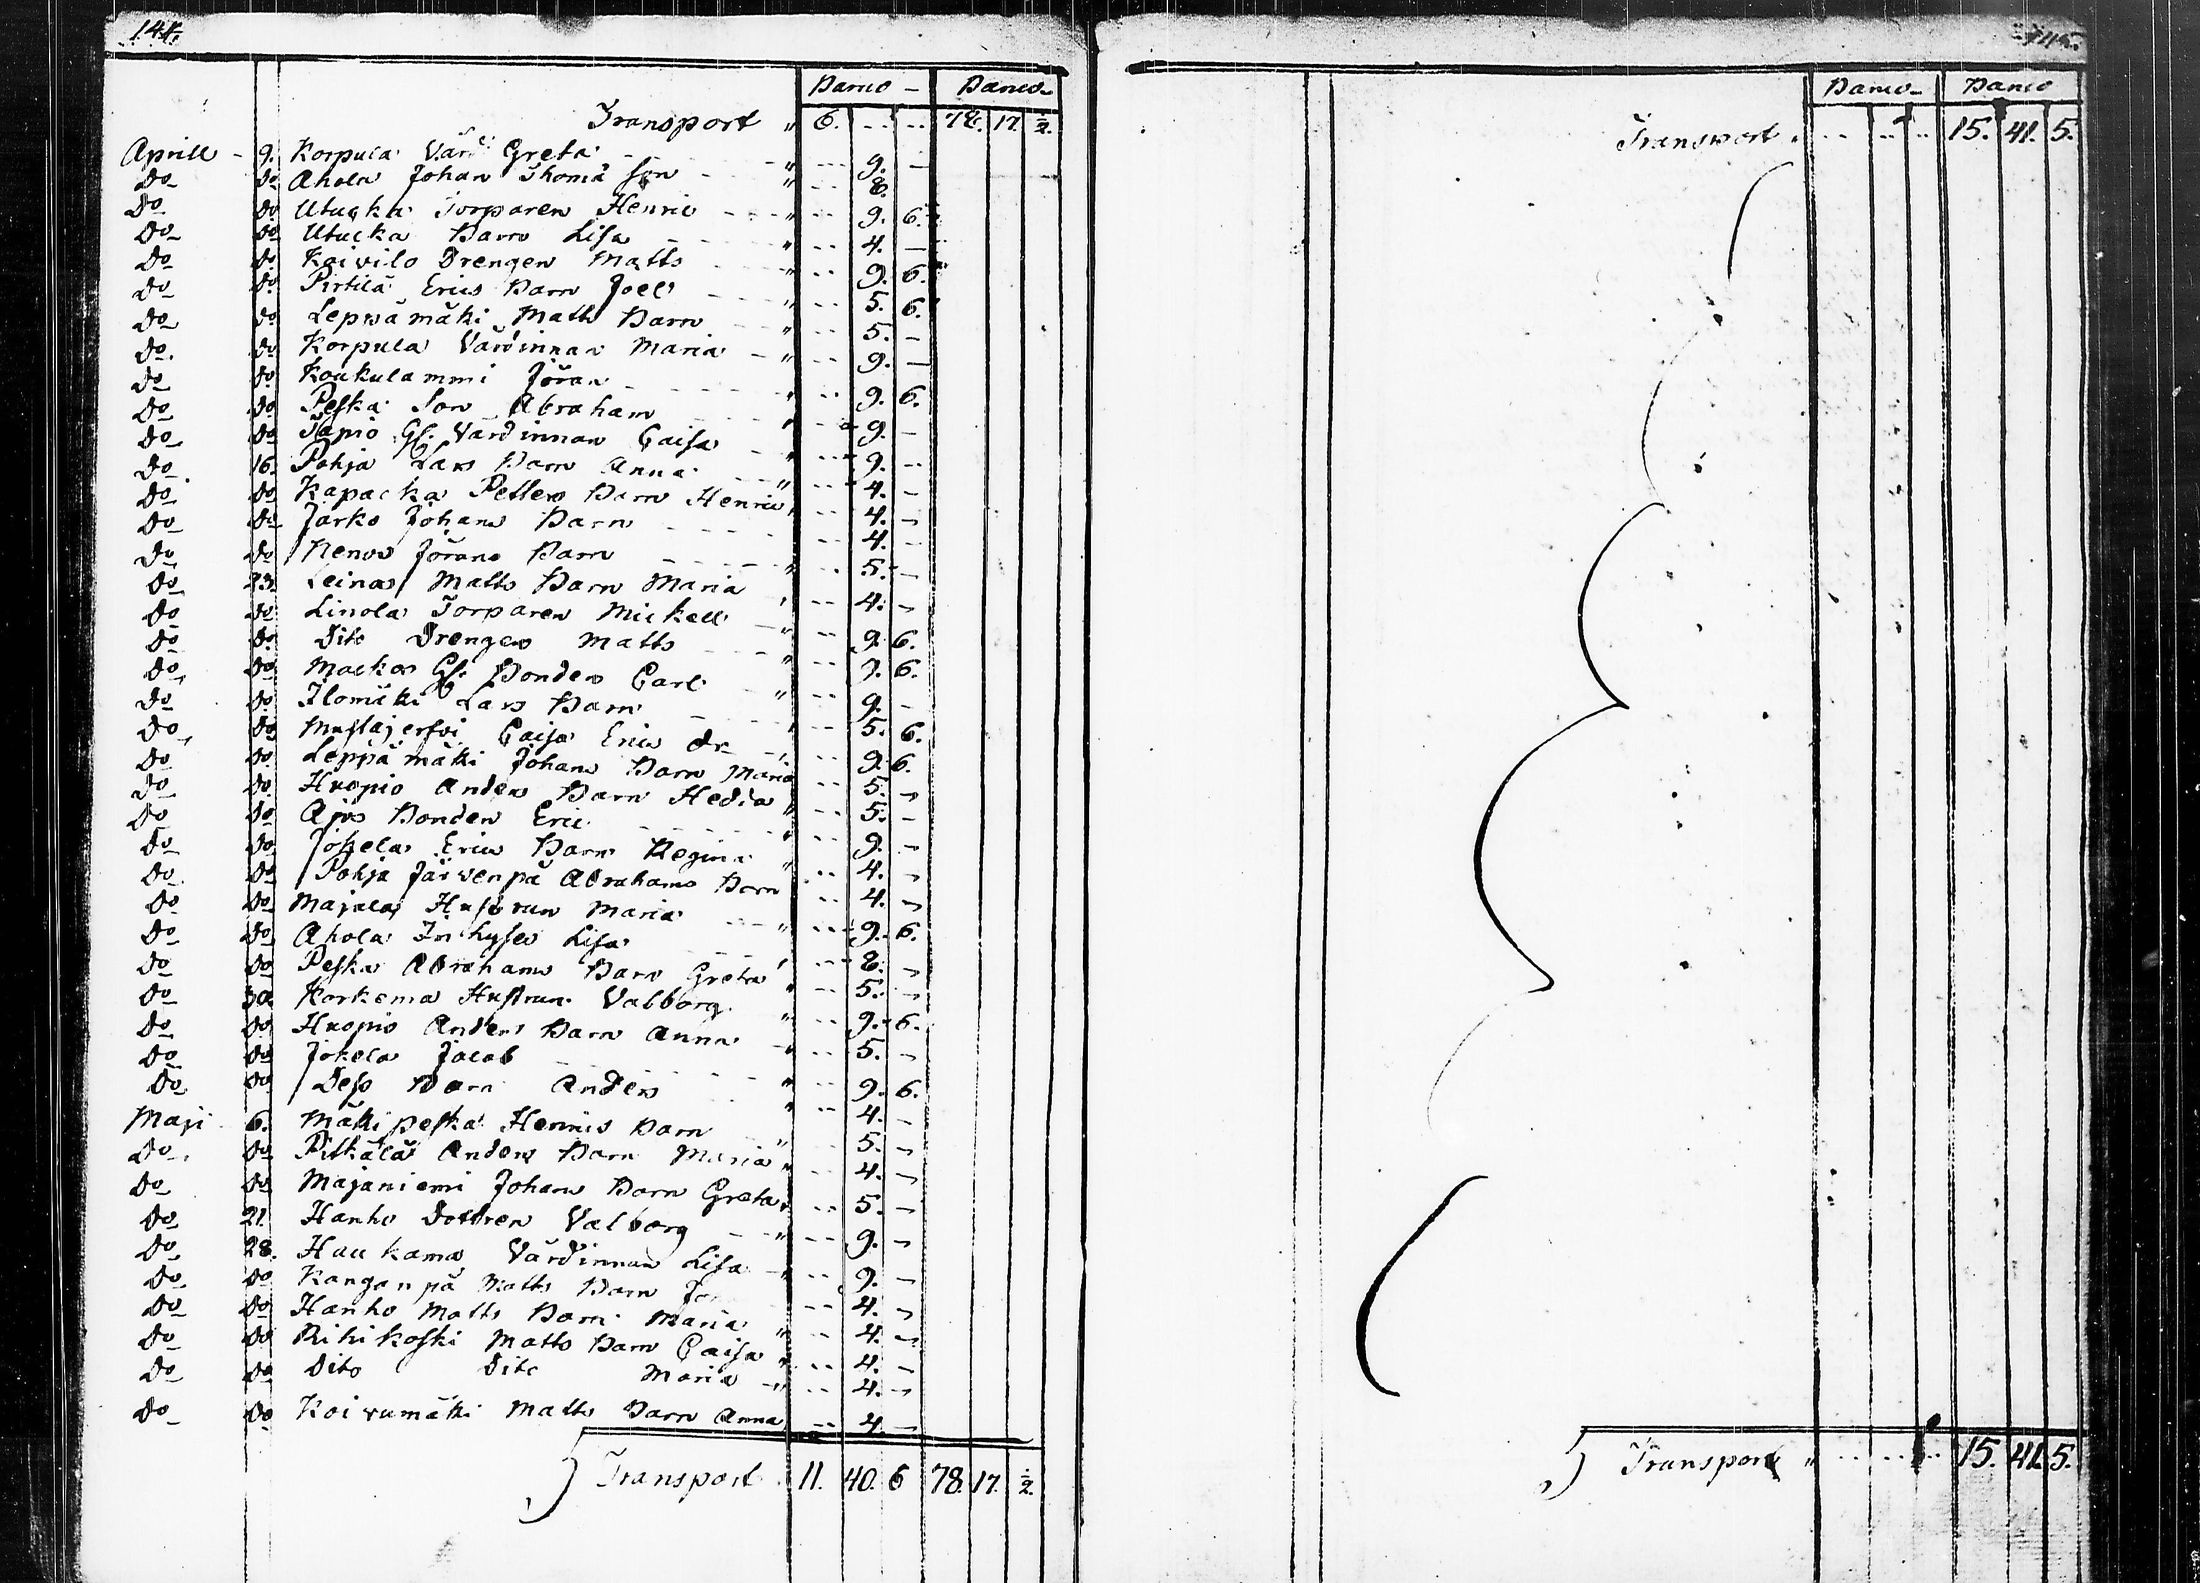 144.
Banco – Banco –
Transport „ 6. -- -- 78. 17. ½.
Aprill – 9. Korpula Värd Greta „ -- 9. –
do do Ahola Johan Thomæ Son „ -- 8.
do do Utucka Torparen Henric „ -- 9. 6.
do do Utucka Barn Lisa „ -- 4. –
do do Koivilo Drengen Matts „ -- 9. 6.
do do Pirtilä Erics Barn Joel „ -- 5. 6.
do do Lepwämäki Matts Barn „ -- 5. –
do do Korpula Värdinnan Maria „ -- 9. –
do do Koukulammi Jöran -- 9. 6.
do do Peska Son Abraham -- 9. –
do do Tapio Gl. Värdinnan Caisa „ -- 9. --
do 16. Pohja Lars Barn Anna „ -- 4. –
do do Kapacka Petters Barn Henric -- 4. –
do do Jarko Johans Barn -- 4. –
do do Renvo Jörans Barn „ -- 5. –
do 23. Leinas Matts Barn Maria -- 4. –
do do Linola Torparen Mickell „ -- 9. 6.
do do Dito Drengen Matts -- 9. 6.
do do Mackas Gl. Bonden Carl „ -- 9. –
do do Ilomäki Lars Barn -- 5. 6.
do do Mustajerfvi Caisa Erics dr „ -- 9. 6.
do do Leppämäki Johans Barn Maria -- 5. –
do do Huopio Anders Barn Hedda „ -- 5. –
do do Ajos Bonden Eric „ -- 9. –
do do Jokela Erics Barn Regina „ -- 4. –
do do Pohja Järwenpä Abrahams Barn -- 4. –
do do Majala Hustrun Maria „ -- 9. 6.
do do Ahola Inhyses Lisa -- 8. –
do do Peska Abrahams Barn Greta „ -- 5. –
do 30. Korkema Hustrun Valborg „ -- 9. 6.
do do Huopio Anders Barn Anna „ -- 5. –
do do Jokela Jacob „ -- 9. 6.
do do Dess Barn Anders „ -- 4. –
Maji 6. Mäkipeska Henrics Barn „ -- 5. –
do do Pitkälä Anders Barn Maria „ -- 4. –
do do Majaniemi Johans Barn Greta „ -- 5. –
do 21. Hanho Dottren Valborg – „ -- 9. –
do 28. Haukama Värdinnan Lisa „ -- 9. –
do do Kanganpä Matts Barn -- 4. –
do do Hanho Matts Barn Maria „ -- 4. –
do do Rihikoski Matts Barn Caisa „ -- 4. –
do do Dito Dito Maria „ -- 4. –
do do Koivumäki Matts Barn Anna -- 4. –
Transport 11. 40. 6 78. 17. ½.
145.
Banco – Banco
Transport „ -- -- -- 15. 41. 5.
Transport „ -- -- -- 15. 41. 5.